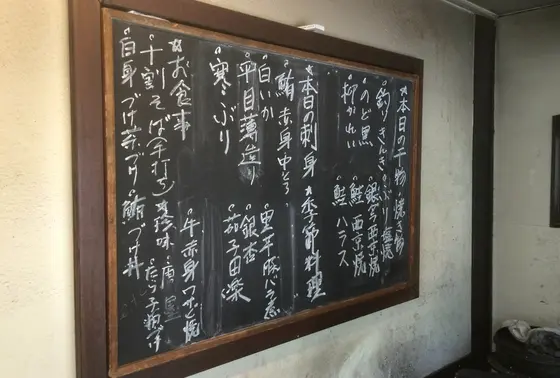 ★本日の干物 焼き物
°釣りきんき °ぶり塩焼
°のど黒 °銀だら西京焼
°柳かれい °鮭西京焼
°鮭ハラス
★本日の刺身 ★季節料理
°鮪赤身中とろ
°白いか °里平豚バラ葱
°平目薄造り °銀杏
°寒ぶり °茄子田楽
★お食事 °牛赤身わさび焼
°十割そば(手打ち) ★珍味
°白身づけ茶づけ °鮪づけ丼 たらこ粕づけ